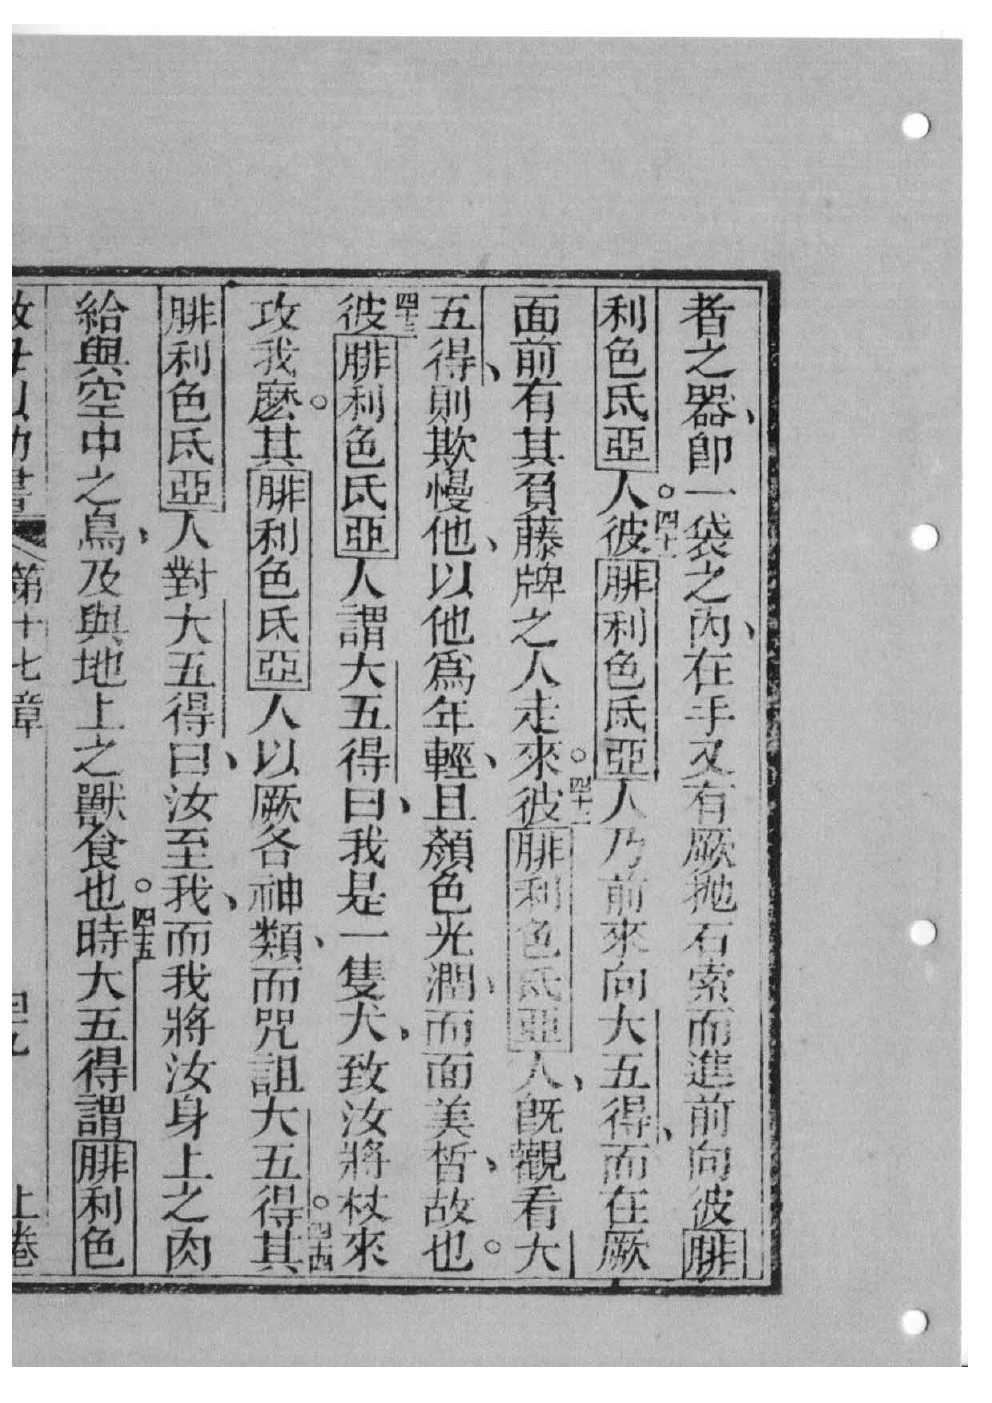 者之器、卽一袋之內、在手又有厥抛石索而進前向彼腓
利色氐亞人。四十一彼腓利色氐亞人乃前來向大五得、而在厥
面前有其負藤牌之人走來。四十二彼腓利色氐亞人、既觀看大
五得、則欺慢他、以他爲年輕、且顏色光潤、而面美皙、故也。
四十三彼腓利色氐亞人謂大五得曰、我是一隻犬、致汝將杖來
攻我麽。其腓利色氐亞人以厥各神類、而咒詛大五得。四十四其
腓利色氐亞人對大五得曰、汝至我、而我將汝身上之肉
給與空中之鳥、及與地上之獸食也。四十五時大五得謂腓利色
第十七章 上卷